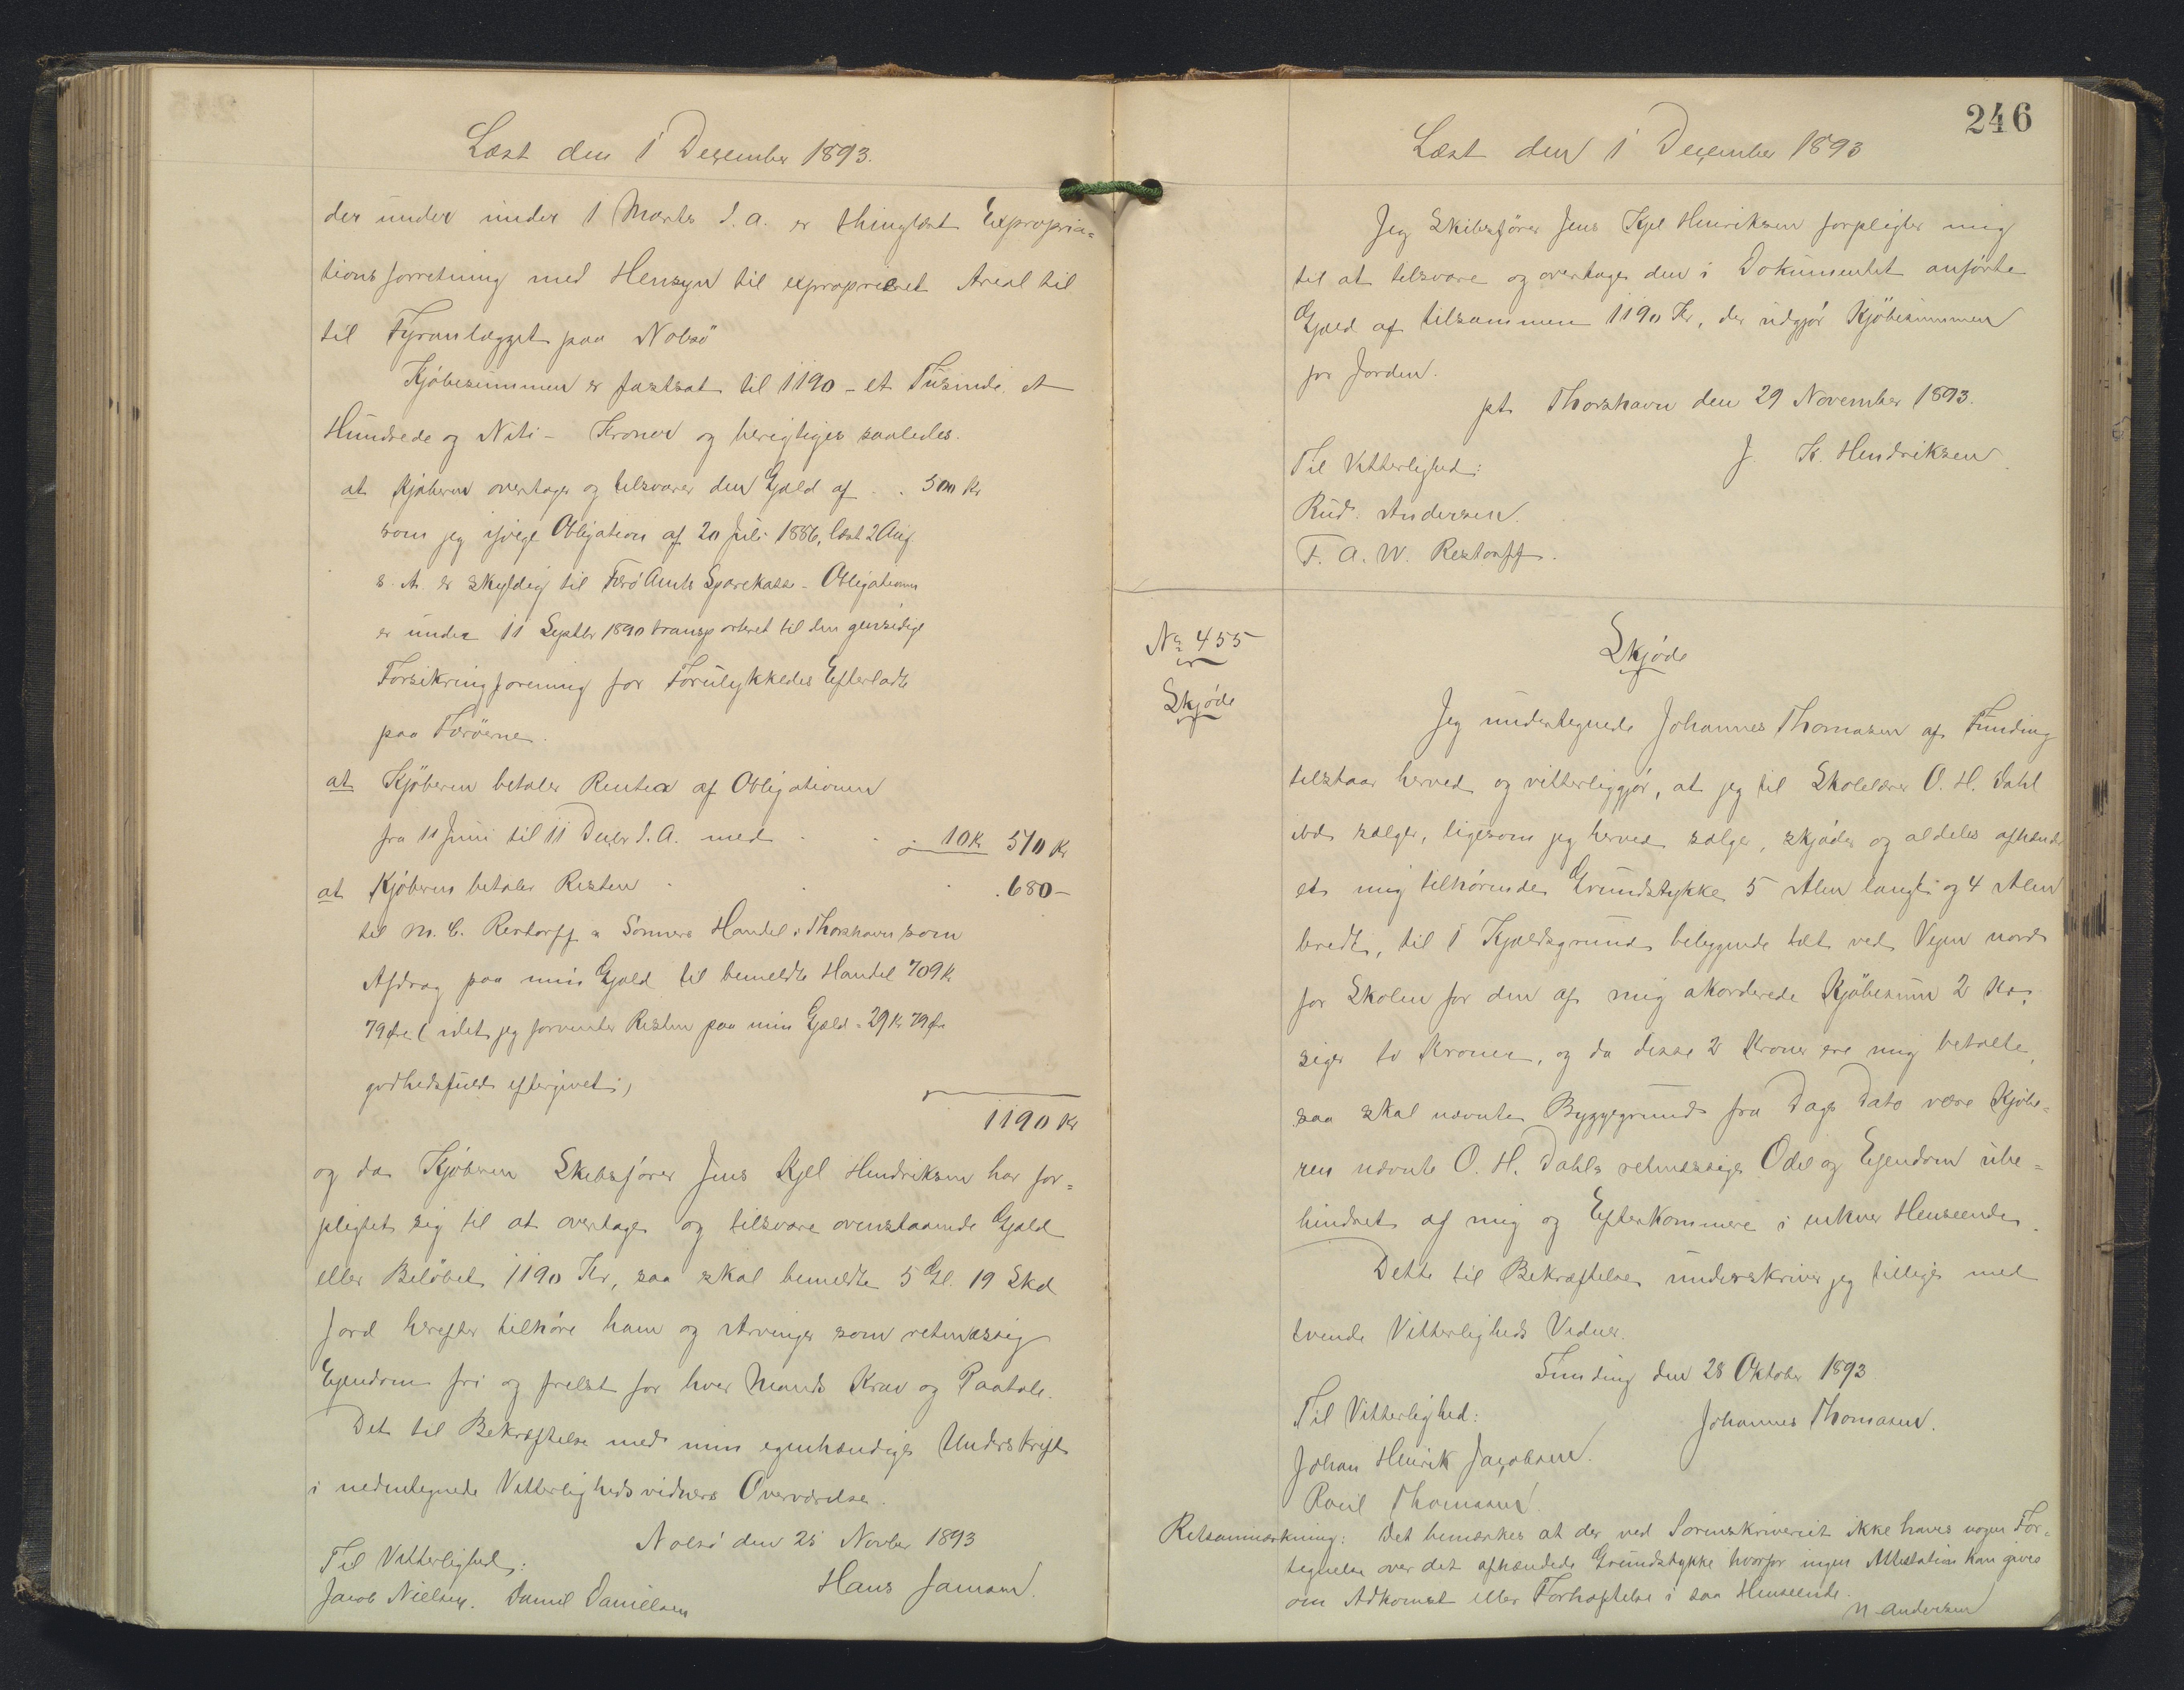 Læst den 1 December 1893.
der under under 1 Marts d. a. er thinglæst Expropria=
tionsforretning med Hensyn til exproprieret Areal til
til Fyranlægget paa Nolsö
Kjöbesummen er fastsat til 1190 - et Tusinde et
Hundrede og Niti - Kroner og berigtiges saaledes.
at Kjøberen overtager og tilsvarer den Gjæld af . . 500 Kr
som jeg ifölge Obligation af 20 Juli 1886, læst 2 Aug.
s. A. er skyldig til Færö Amts Sparekasse - Obligationen
er under 11 Septbr 1890 transporteret til den gensidige
Forsikringsforening for Forulykkedes Efterladte
paa Færöerne.
at Kjöberen betaler Renten af Obligationen
fra 11 Juni til 11 Decbr d. A. med . . . 10 Kr 510 Kr
at Kjöberen betaler Resten . . . . 680 -
til M. C. Restorff & Sönners Handel i Thorshavn som
Afdrag paa min Gjæld til bemeldte Handel 709 Kr
79 Øre (idet jeg forventer Resten paa min Gjæld = 29 Kr 79 Øre
godhedsfuldt eftergivet;)
1190 Kr
og da Kjöberen Skibsförer Jens Kjel Hendriksen har for=
pligtet sig til at overtage og tilsvare ovenstaaende Gjæld
eller Belöbet 1190 Kr, saa skal bemeldte 5 Gl. 19 Skd
Jord herefter tilhöre ham og Arvinger som retmæssig
Ejendom fri og frelst for hver Mands Krav og Paatale.
Det til Bekræftelse med min egenhændige Underskrift
i nedentegnede Vitterlighedsvidners Overværelse.
Nolsö den 25 Novbr 1893
Til Vitterlighed:
Hans Jamsen.
Jacob Nielsen. Daniel Danielsen
246
Læst den 1 December 1893
Jeg Skibsförer Jens Kjel Henriksen forpligter mig
til at tilsvare og overtage den i Dokumentet anförte
Gjæld af tilsammen 1190 Kr, der udgjör Kjöbesummen
for Jorden.
pt. Thorshavn den 29 November 1893.
Til Vitterlighed:
J. K. Hendriksen.
Rud. Andersen.
F. A. W. Restorff.
No 455
Skjöde
Skjöde
Jeg undertegnede Johannes Thomasen af Funding
tilstaar herved og vitterliggjör, at jeg til Skolelærer O. H. Dahl
ibd. sælger, ligesom jeg herved sælger, skjöder og aldeles afhænder
et mig tilhörende Grundstykke 5 Alen langt og 4 Alen
bredt, til 1 Kjældsgrund beliggende tæt ved Vejen nord
for Skolen for den af mig akorderede Kjöbesum 2 Kr,
siger to Kroner, og da disse 2 Kroner ere mig betalte,
saa skal nævnte Byggegrund fra Dags Dato være Kjöbe=
ren nævnte O. H. Dahls retmæssige Odel og Ejendom ube=
hindret af mig og Efterkommere i enhver Henseende.
Dette til Bekræftelse underskriver jeg tillige med
tvende Vitterligheds Vidner.
Funding den 28 Oktober 1893
Til Vitterlighed:
Johannes Thomasen.
Johan Henrik Jacobsen.
Poul Thomasen.
Retsanmærkning: Det bemærkes at der ved Sorenskriveriet ikke haves nogen For=
tegnelse over det afhændede Grundstykke hvorfor ingen Attestation kan gives
om Adkomst eller Forhæftelse i saa Henseende.
N. Andersen